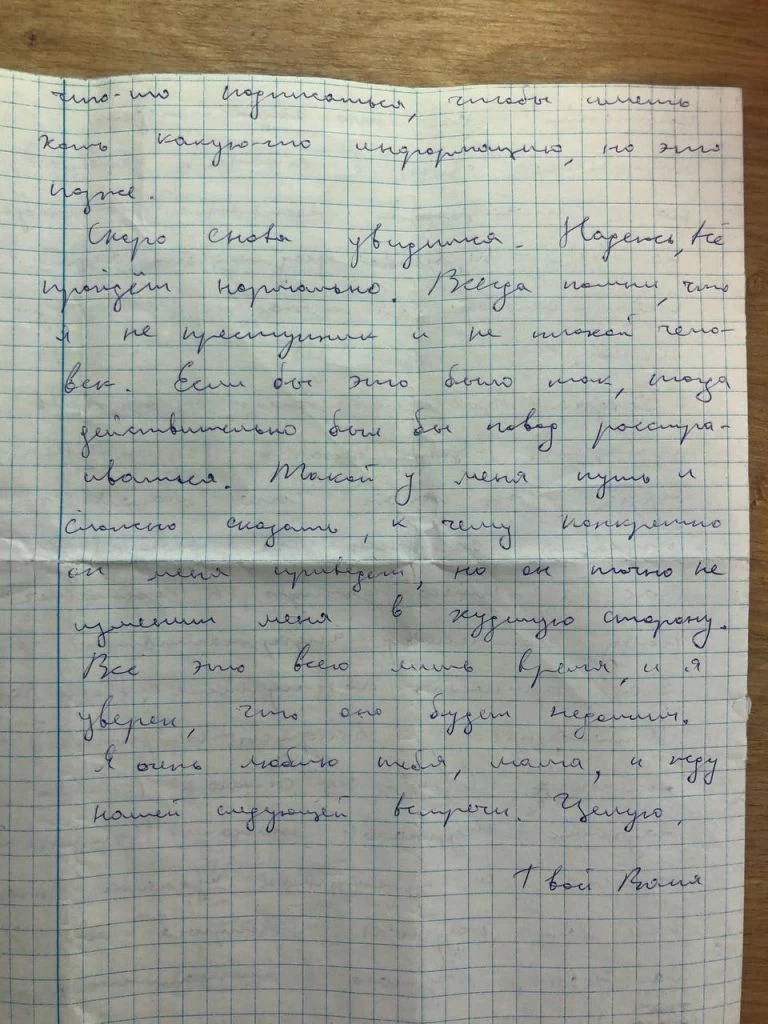 что-то подписаться, чтобы иметь
хоть какую-то информацию, но это
позже.
Скоро снова увидимся. Надеюсь, всё
пройдёт нормально. Всегда помни, что
я не преступник и не плохой чело-
век. Если бы это было так, тогда
действительно был бы повод расстра-
иваться. Такой у меня путь и
сложно сказать, к чему конкретно
он меня приведёт, но он точно не
изменит меня в худшую сторону.
Всё это всего лишь время, и я
уверен, что оно будет недолгим.
Я очень люблю тебя, мама, и жду
нашей следующей встречи. Целую,
Твой